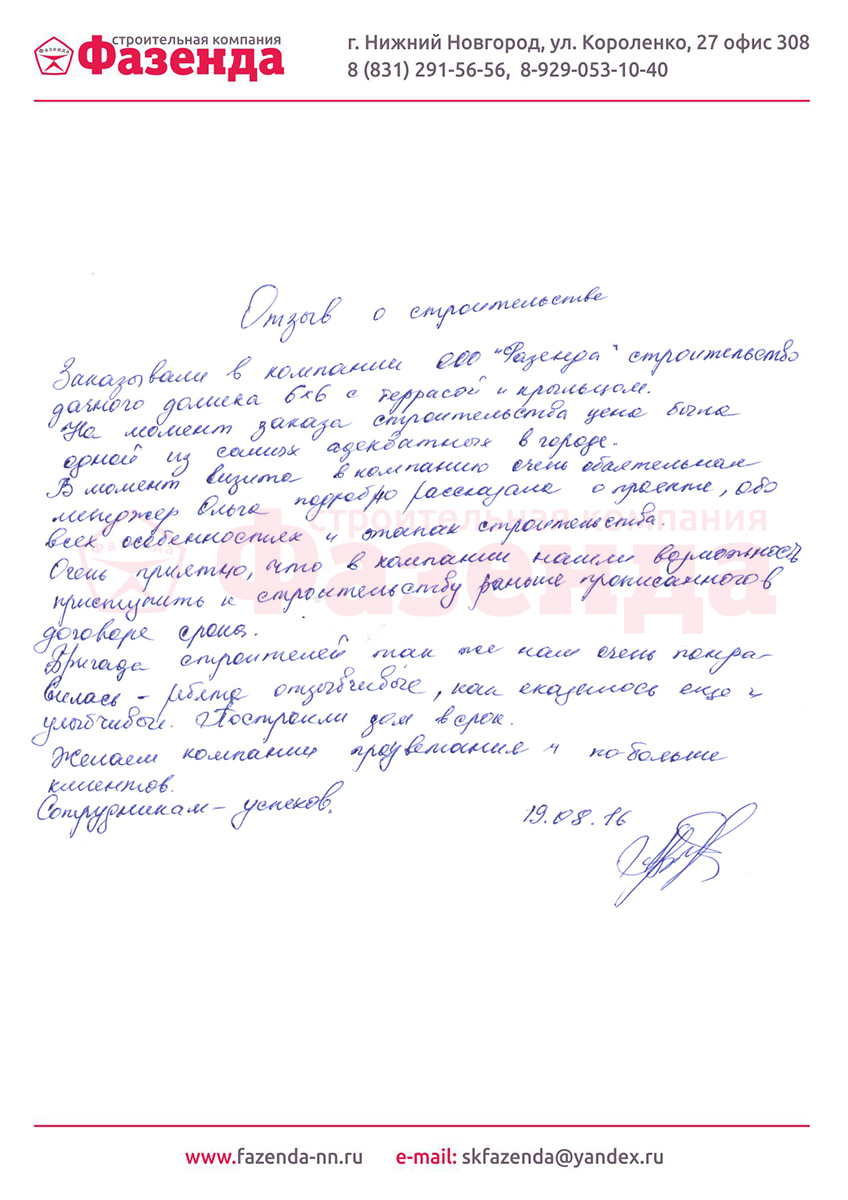 строительная компания
Фазенда
Фазенда
г. Нижний Новгород, ул. Короленко, 27 офис 308
8 (831) 291-56-56, 8-929-053-10-40
Отзыв о строительстве
Заказывали в компании ООО "Фазенда" строительство
дачного домика 6х6 с террасой и крыльцом.
На момент заказа строительства цена была
одной из самых адекватных в городе.
В момент визита в компанию очень обаятельная
менеджер Ольга подробно рассказала о проекте, обо
всех особенностях и этапах строительства.
Очень приятно, что в компании нашли возможность
приступить к строительству раньше прописанного в
договоре срока.
Бригада строителей так же нам очень понра-
вилась - ребята отзывчивые, как оказалось еще и
улыбчивые. Построили дом в срок.
Желаем компании процветания и побольше
клиентов.
Сотрудникам - успехов.
19.08.16
строительная компания
Фазенда
Фазенда
www.fazenda-nn.ru e-mail: skfazenda@yandex.ru